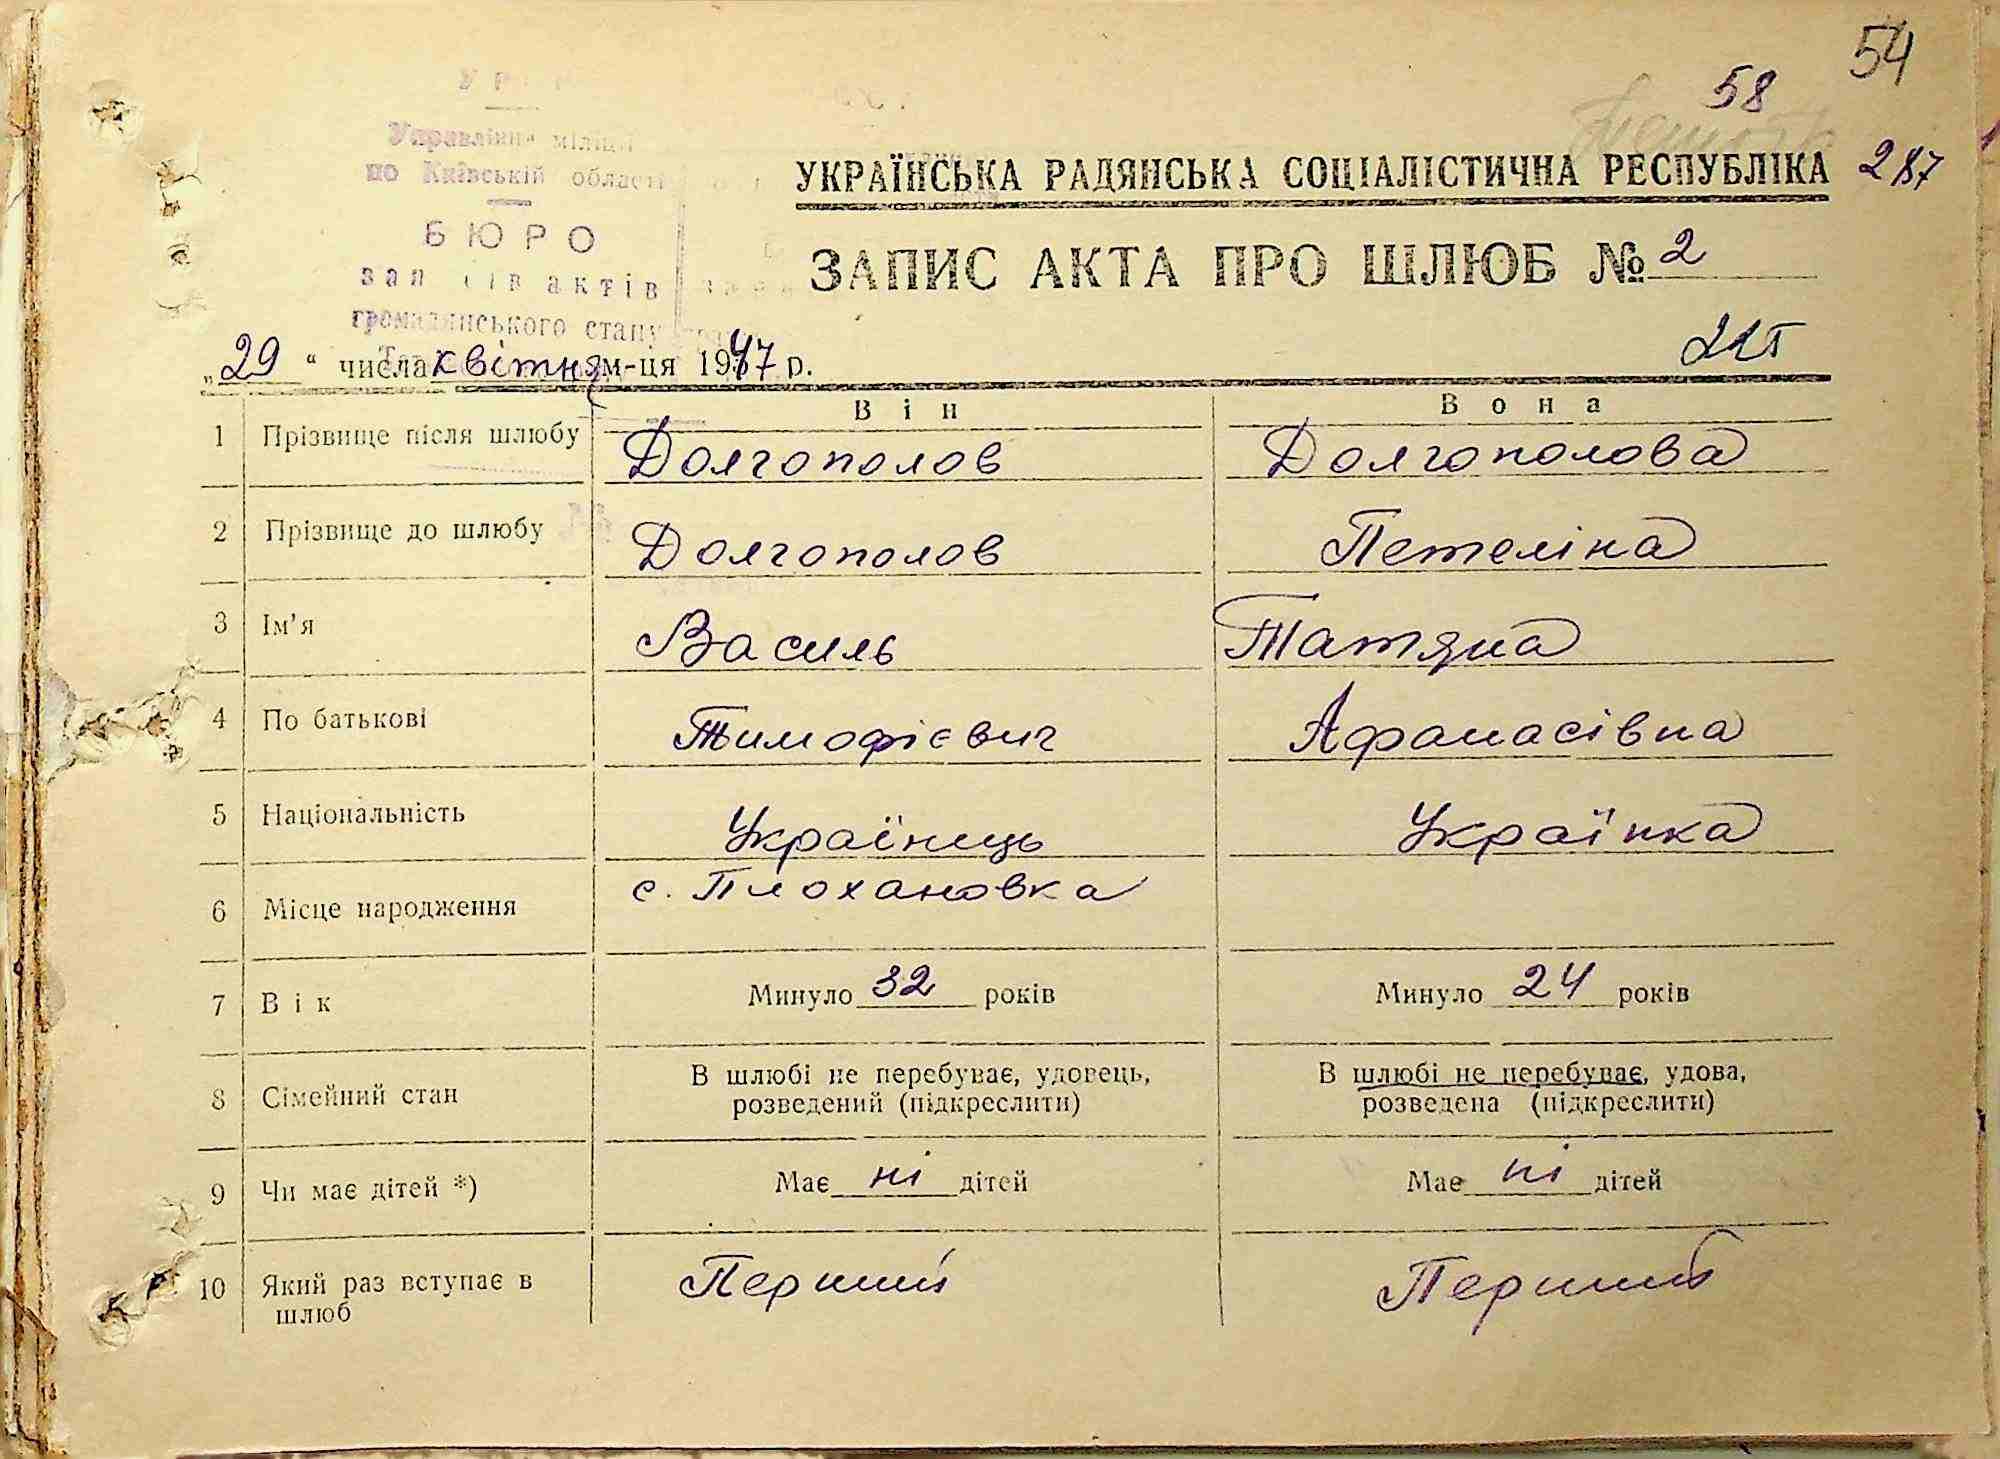 54
58
287
Управління міліції
по Київській області
БЮРО
записів актів
громадянського стану
УКРАЇНСЬКА РАДЯНСЬКА СОЦІАЛІСТИЧНА РЕСПУБЛІКА
ЗАПИС АКТА ПРО ШЛЮБ № 2
„29“ числа квітня м-ця 1947 р.
Він Вона
1 Прізвище після шлюбу Долгополов Долгополова
2 Прізвище до шлюбу Долгополов Петеліна
3 Ім'я Василь Татяна
4 По батькові Тимофієвич Афанасівна
5 Національність Українець Українка
6 Місце народження с. Плохановка
7 Вік Минуло 32 років Минуло 24 років
8 Сімейний стан В шлюбі не перебуває, удовець, В шлюбі не перебуває, удова,
розведений (підкреслити) розведена (підкреслити)
9 Чи має дітей *) Має ні дітей Має ні дітей
10 Який раз вступає в Перший Перший
шлюб